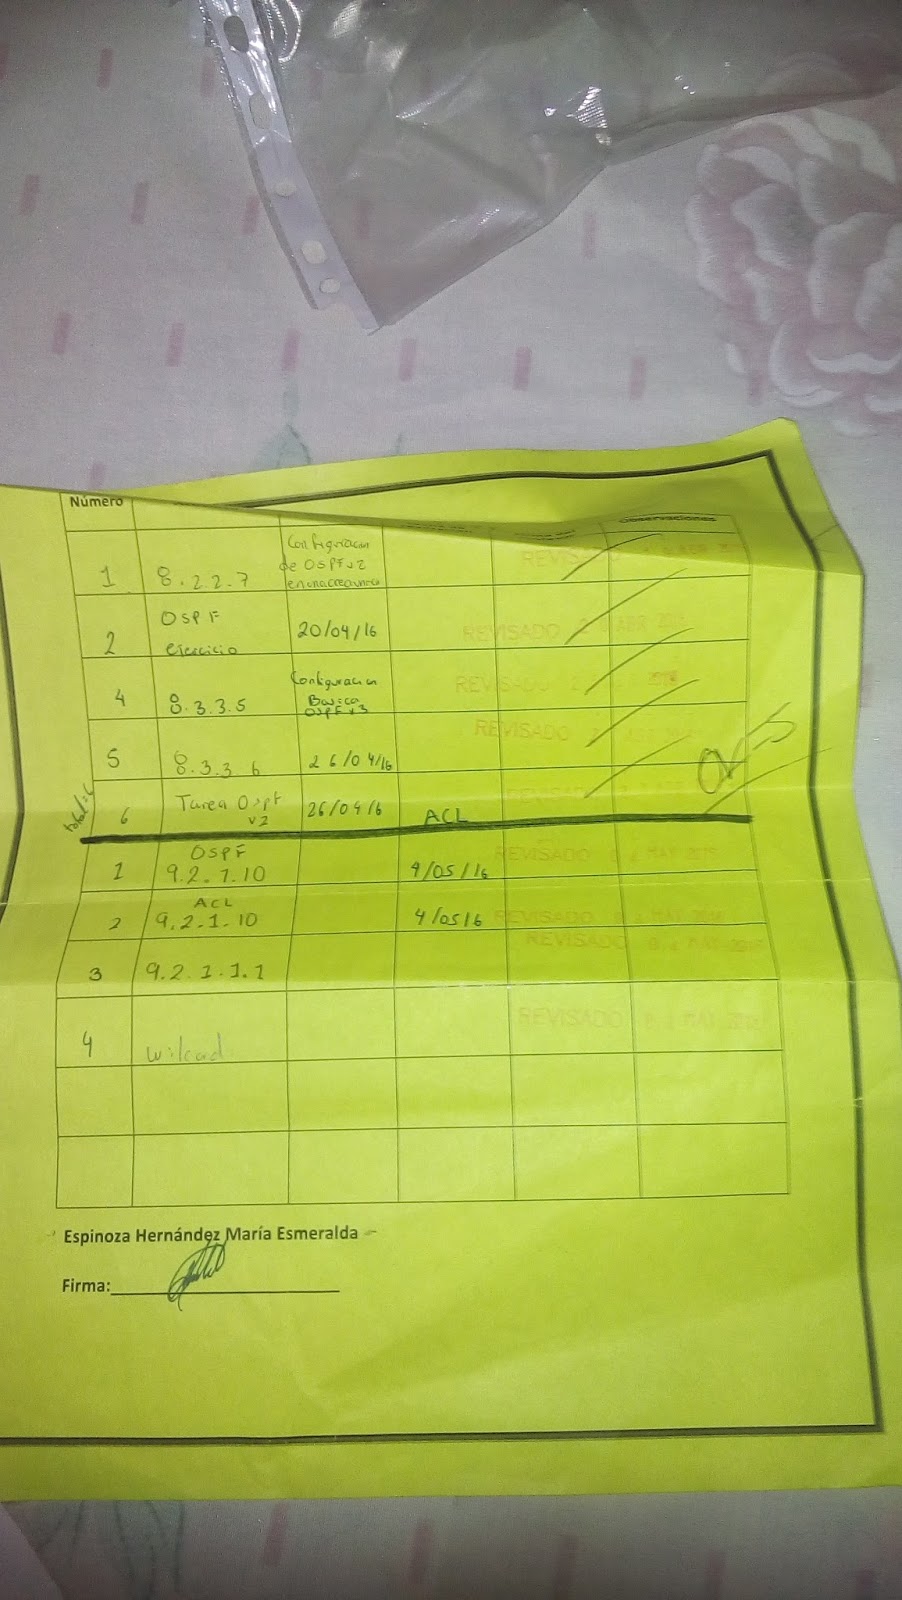 Número
Observaciones
1 8.2.2.7 Configuracion
de OSPFv2
REVISADO
2 OSPF
ejercicio 20/04/16 REVISADO ABR
4 8.3.3.5 Configuracion
Basica
OSPFv3 REVISADO
5 8.3.3.6 26/04/16 REVISADO
6 Tarea Ospf
v2 26/04/16 ACL
1 OSPF
9.2.1.10 4/05/16 REVISADO MAY
2 ACL
9.2.1.10 4/05/16 REVISADO MAY
3 9.2.1.1.1 REVISADO MAY
4 wilcad REVISADO MAY
Espinoza Hernández María Esmeralda
Firma: